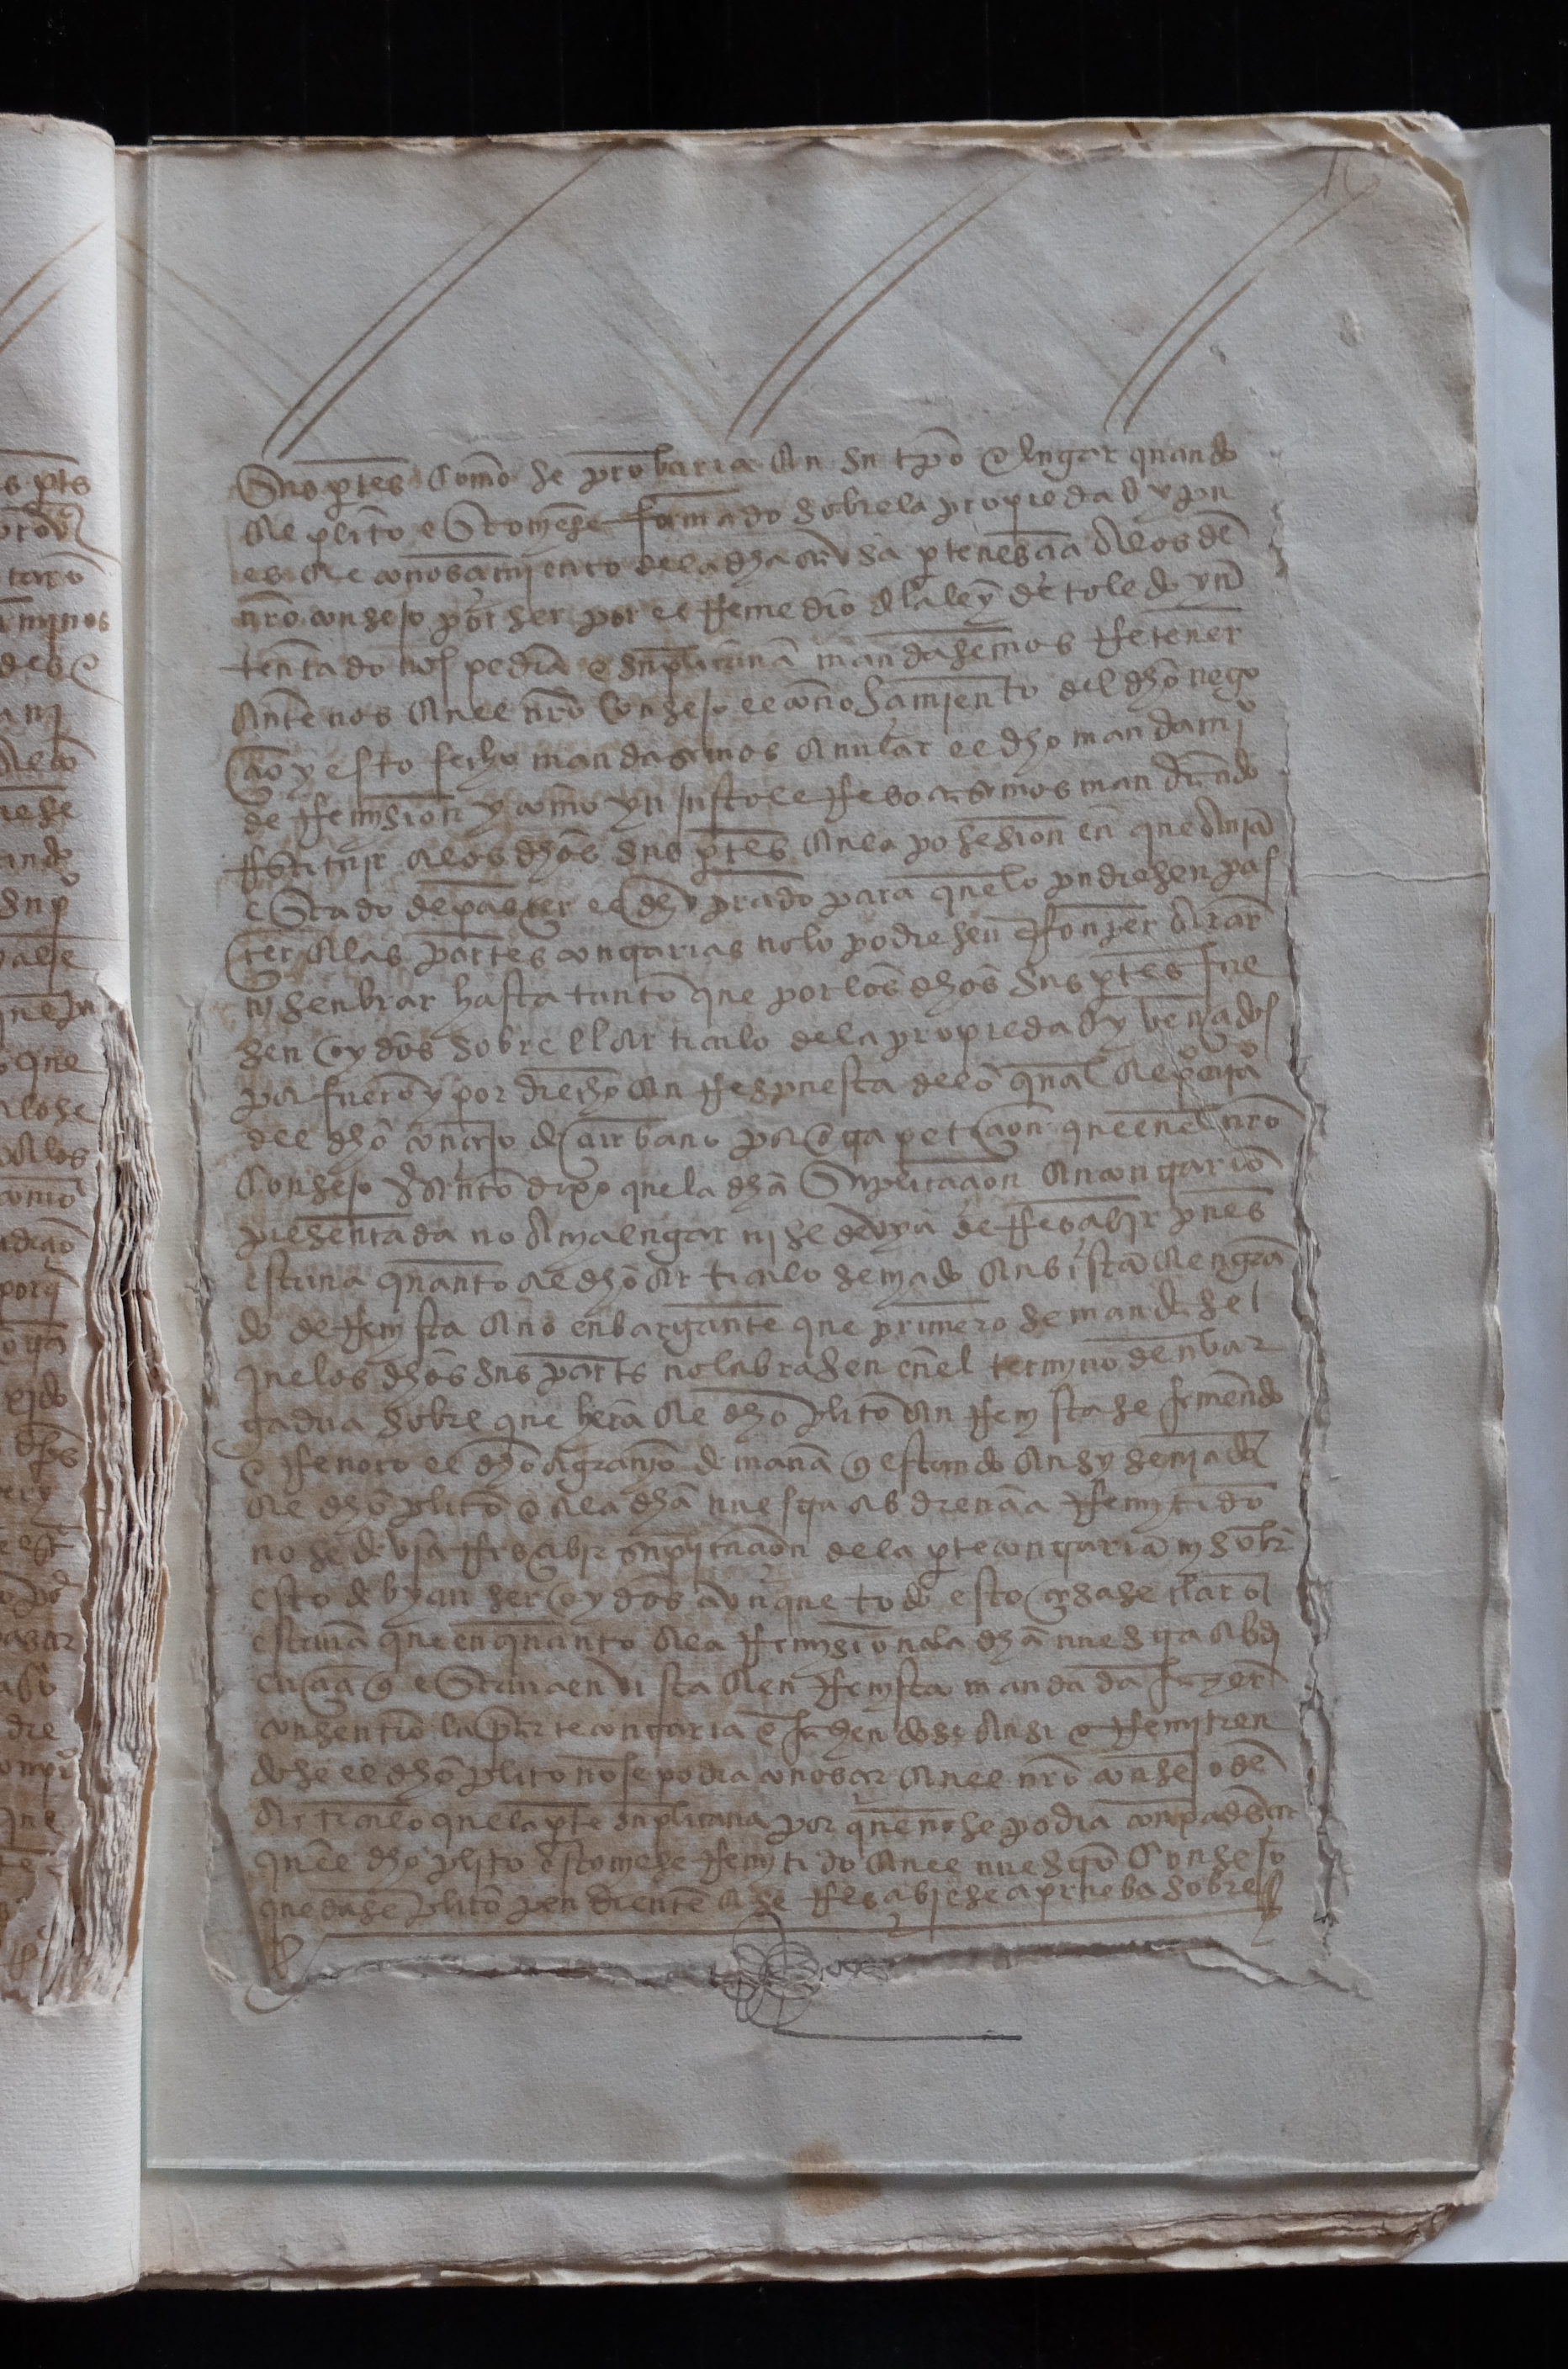 Sus ptes como se probaria en su tpo e lugar quando
el plito estoviese formado sobre la propiedad y pu
es el conosçimiento de la dha cavsa ptenesçia a los del
nro consejo por ser por el rremedio de la ley de toledo yn
tentado nos pedia e suplicava mandasemos rretener
ante nos en el nro consejo el conosçimiento del dho nego
çio y esto fecho mandasemos anular el dho mandamio
de rremision y como ynjusto le rrebocasemos mandando
rrestituir a los dhos sus ptes en la posesion en que avian
estado de pasçer el dho prado para que lo pudiesen pas
çer e las partes contrarias no lo podiesen rronper arar
ni senbrar hasta tanto que por los dhos sus ptes fue
sen oydos sobre el articulo de la propiedad y vençidos
por fuero y por drecho en rrespuesta de lo qual la parte
del dho conçejo de por otra petiçion que en el nro
consejo presento dixo que la dha suplicaçion en contrario
presentada no avia lugar ni se devya de rresçibir pues
estava quanto al dho articulo semado en vista en gra
do de rrevista no enbargante que primero se mandase
que los dhos sus partes no labrasen en el termino de
sobre que hera el dho plito en rrevista se emendo
e rrevoco el dho agravio de manera que estando ansy
el dho plito e a la dha nuestra abdiençia rremitido
no se debia rresçibir suplicaçion de la pte contraria ni sobre
esto debyan ser oydos avnque todo esto çesase claro
estava que en quanto a la rremision a la dha nuestra abdi
ençia que estava en vista e en rrevista mandada fazer
consentio la parte contraria e faziendose ansi e rremitien
dose el dho plito no se podia conosçer en el nro consejo del
articulo que la pte suplicava porque no se podia conpadesçer
que el dho plito estoviese rremitido e en el nuestro consejo
quedase plito pendiente e se rresçibiese a prueba sobre